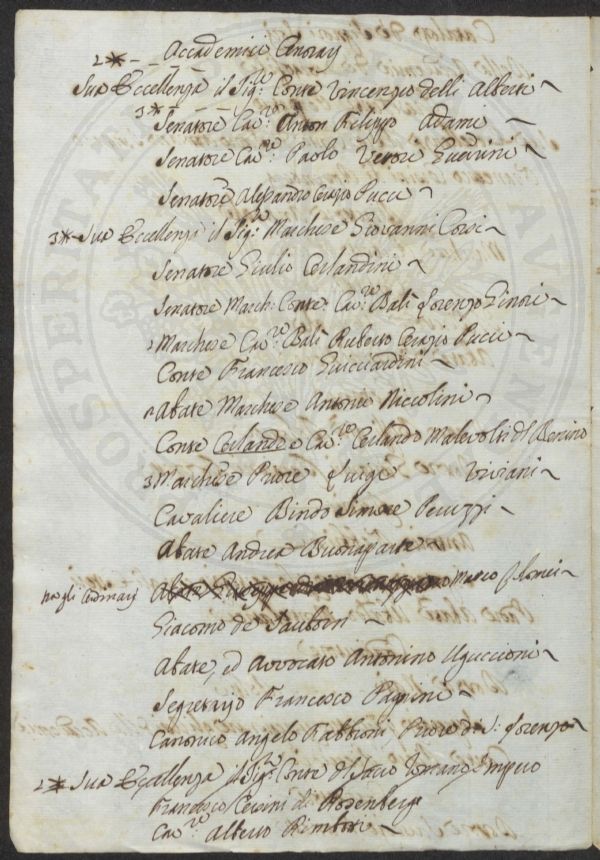 2※- Accademici Onorarj
Sua Eccellenza il Sig.re Conte Vincenzio delli Alberti
3※- Senatore Cav.re Anton Filippo Adami
Senatore Cav.re Paolo Vettori Guerrini
Senatore Alessandro Orazio Pucci
3※ Sua Eccellenza il Sig.re Marchese Giovanni Corsi
Senatore Giulio Orlandini
Senatore March: Conte: Cav.re Balì Lorenzo Ginori
Marchese Cav.re Balì Ruberto Orazio Pucci
Conte Francesco Guicciardini
Abate Marchese Antonio Niccolini
Conte Orlando e Cav.re Orlando Malevolti del Benino
3 Marchese Priore Luigi Viviani
Cavaliere Bindo Simone Peruzzi
Abate Andrea Buonaparte
tra gli Ordinarj Marco
Giacomo de
Abate, ed Avvocato Antonino Uguccioni
Segretario Francesco Pagnini
Canonico Angelo Fabbroni, Priore di S: Lorenzo
2※ Sua Eccellenza il Sig.re Conte del Sacro Romano Impero
Francesco Orsini di Rosenberg
Cav.re Alberto Rimbotti